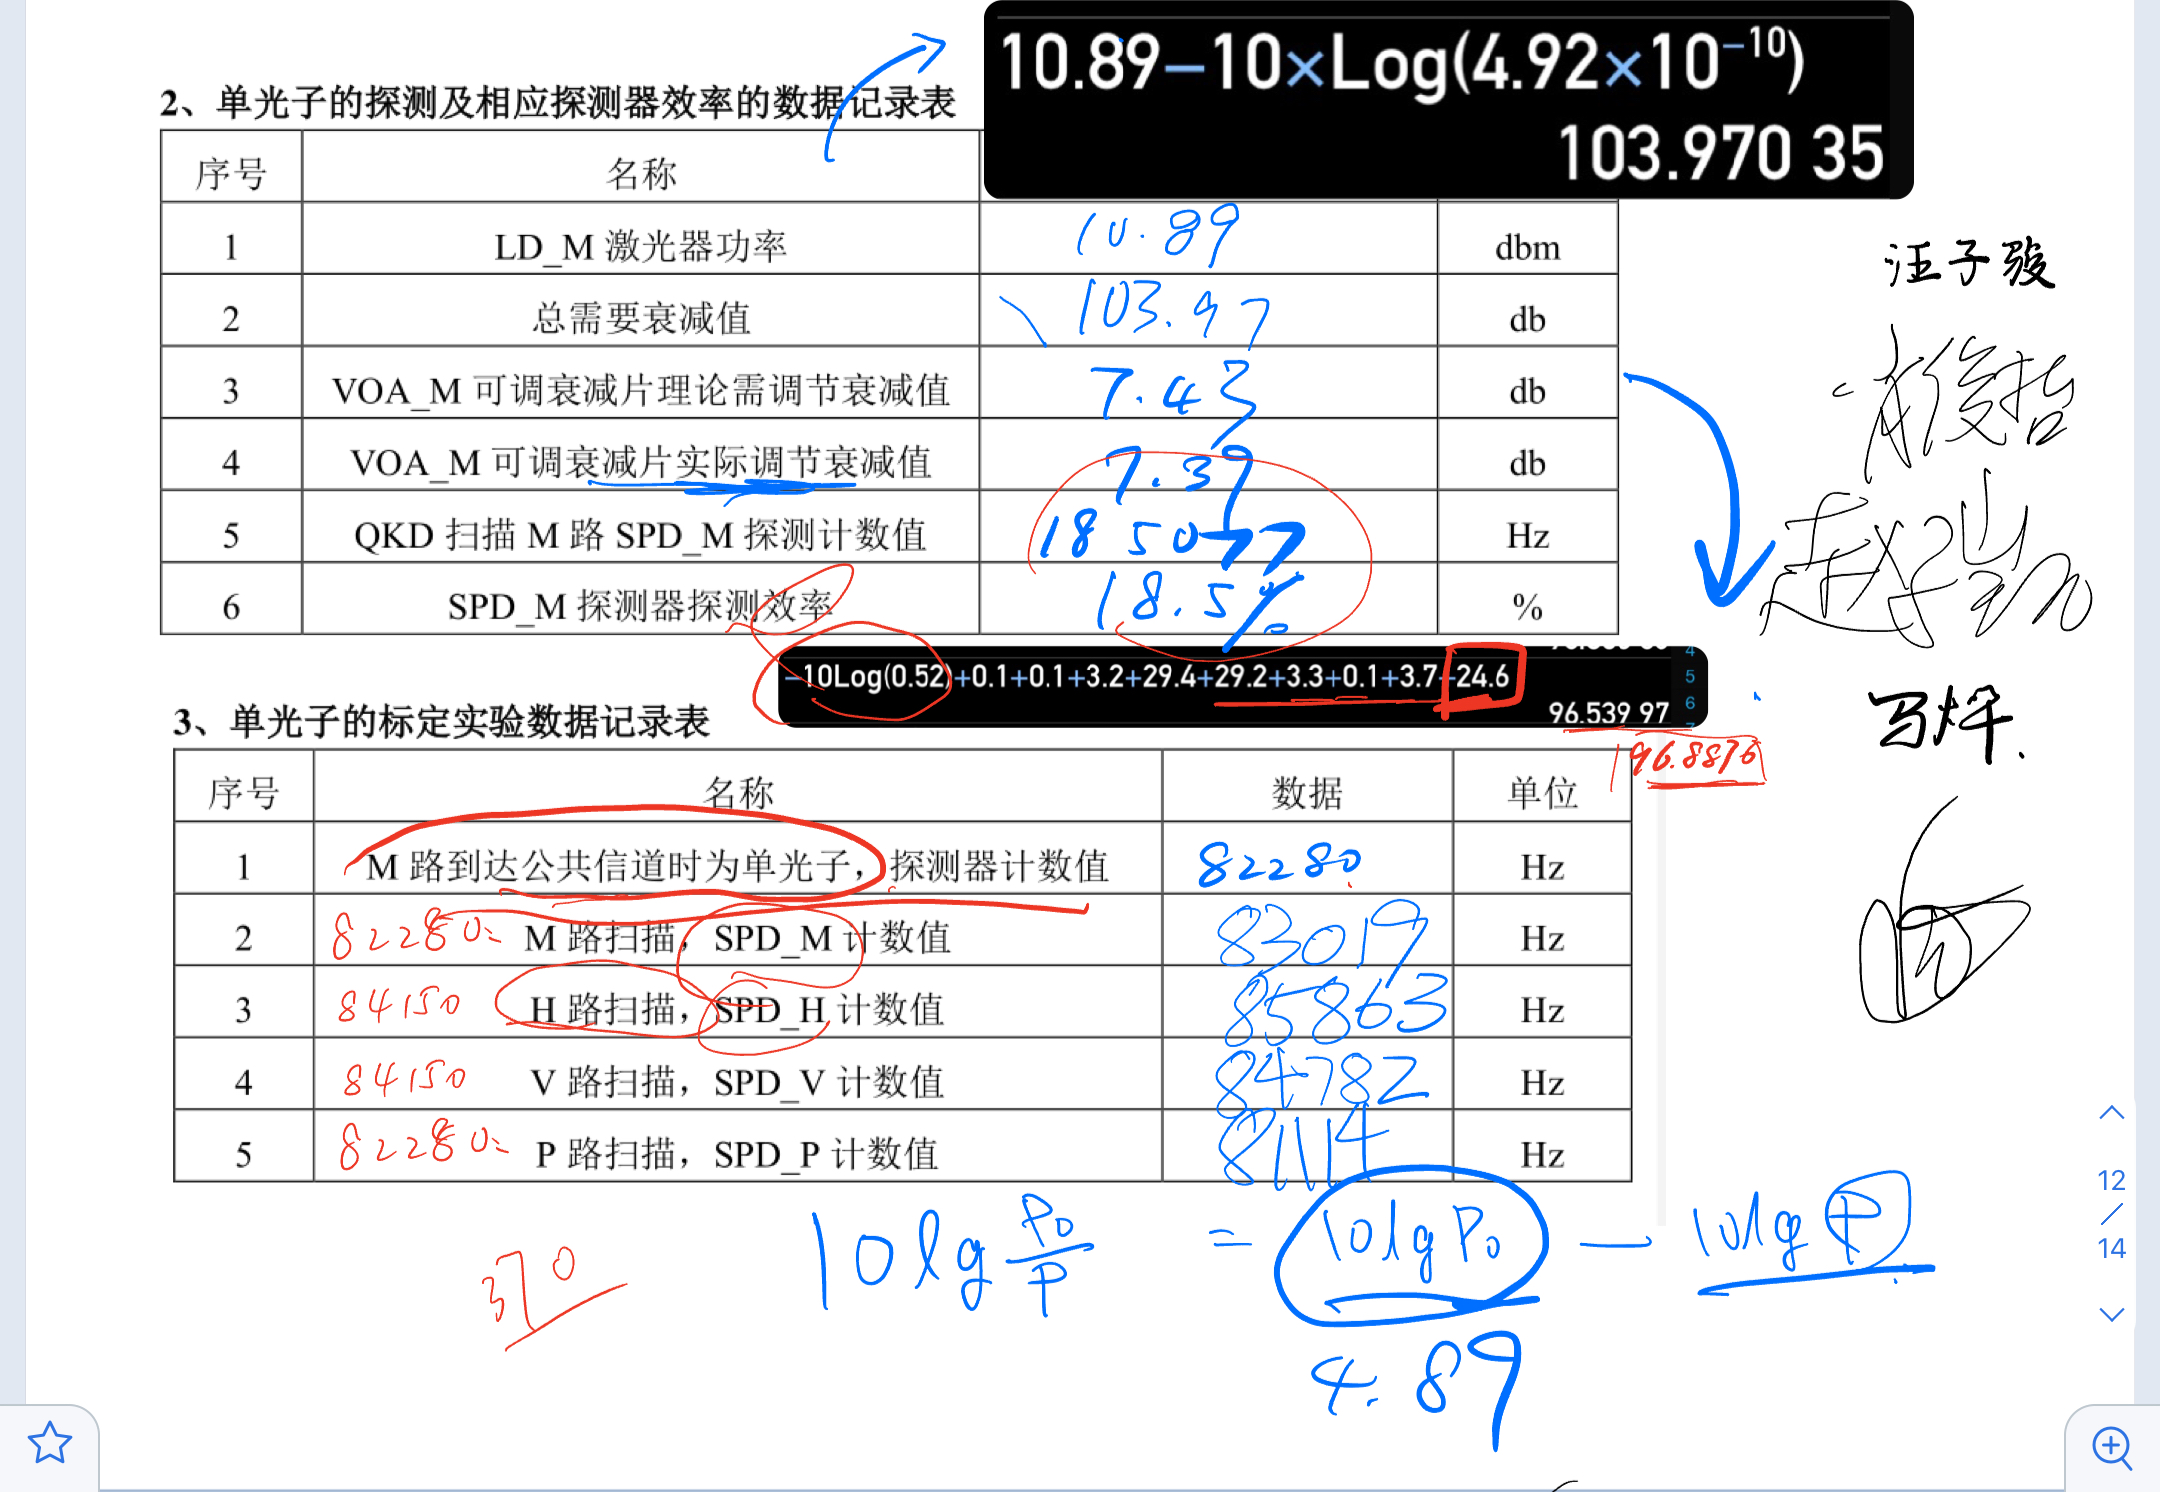 10.89−10×Log(4.92×10⁻¹⁰)
103.970 35
2、单光子的探测及相应探测器效率的数据记录表
序号 名称
1 LD_M 激光器功率 10.89 dbm
2 总需要衰减值 103.97 db
3 VOA_M 可调衰减片理论需调节衰减值 7.43 db
4 VOA_M 可调衰减片实际调节衰减值 7.39 db
5 QKD 扫描 M 路 SPD_M 探测计数值 185077 Hz
6 SPD_M 探测器探测效率 18.5% %
汪子骏
−10Log(0.52)+0.1+0.1+3.2+29.4+29.2+3.3+0.1+3.7+24.6
96.539 97
4
5
6
96.8876
3、单光子的标定实验数据记录表
序号 名称 数据 单位
1 M 路到达公共信道时为单光子，探测器计数值 82280 Hz
2 82280 M 路扫描，SPD_M 计数值 83019 Hz
3 84150 H 路扫描，SPD_H 计数值 85863 Hz
4 84150 V 路扫描，SPD_V 计数值 84782 Hz
5 82280 P 路扫描，SPD_P 计数值 81114 Hz
370
10lg P₀/P = 10lg P₀ − 10lg P
4.89
12
/
14